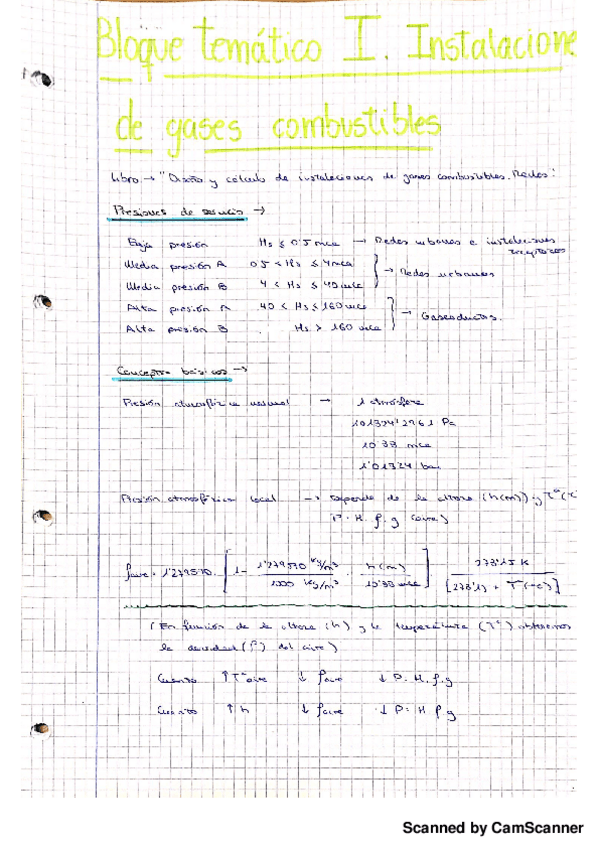 Bloque temático I. Instalacione
de gases combustibles
Libro → "Diseño y cálculo de instalaciones de gases combustibles. Redes".
Presiones de servicio →
Baja presión Hs ≤ 0'5 mca → Redes urbanas e instalaciones receptoras
Media presión A 0'5 < Hs ≤ 4 mca
Media presión B 4 < Hs ≤ 40 mca → Redes urbanas
Alta presión A 40 < Hs ≤ 160 mca
Alta presión B Hs > 160 mca → Gaseoductos.
Conceptos básicos →
Presión atmosférica normal → 1 atmósfera
101324'2961 Pa
10'33 mca
1'01324 bar
Presión atmosférica local → depende de la altura (h(m)) y Tª(
P = H · ρ · g (aire)
ρaire = 1'279570 · [ 1 - 1'279570 kg/m³ / 1000 kg/m³ · h(m) / 10'33 mca ] · 273'15 K / [273'15 + T(ºC)]
(En función de la altura (h) y la temperatura (Tª) obtenemos
la densidad (ρ) del aire)
Cuanto ↑ Tª aire ↓ ρaire ↓ P = H · ρ · g
Cuanto ↑ h ↓ ρaire ↓ P = H ρ g
Scanned by CamScanner